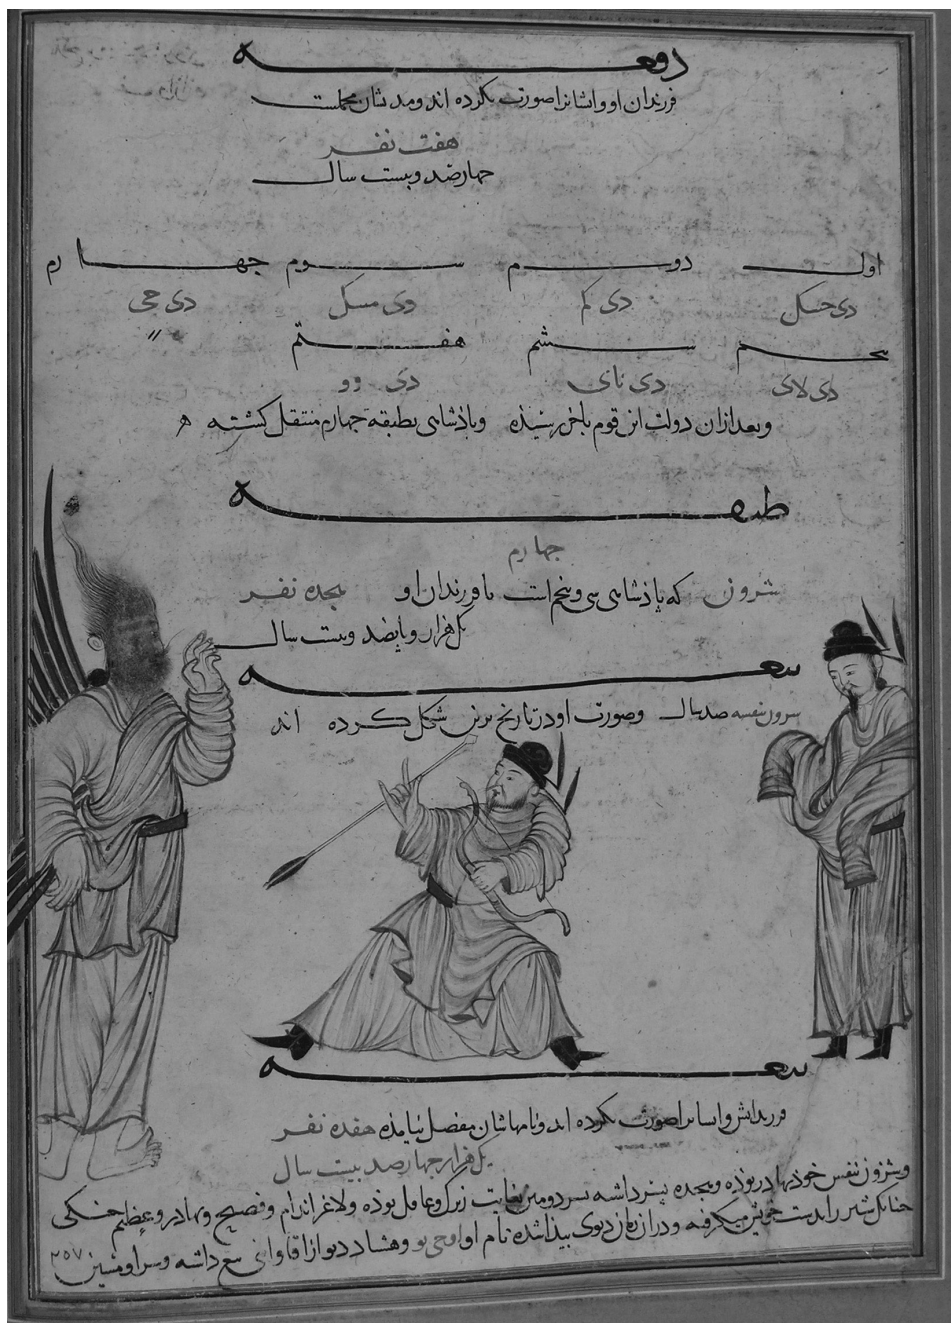 دفعه
فرزندان او و ایشانرا صورت نکرده اند و مدتشان مجملست
هفت نفر
چهارصد و بیست سال
اول دوم سوم چهارم
دی حسکل دی کم دی مسکل دی حی
پنجم ششم هفتم
دی لای دی نای دی وو
و بعد ازان دولت این قوم بآخر رسیده و پاذشاهی بطبقه چهارم منتقل کشته
طبقه
چهارم
شرون که پاذشاهی سی و پنجم است با فرزندان او هجده نفر
یکهزار و پانصد و بیست سال
دفعه
شرون بنفسه صد سال و صورت او در تاریخ برین شکل کرده اند
دفعه
فرزندانش و ایشانرا صورت نکرده اند و نامهاشان مفصل نیامذه هفده نفر
یکهزار و چهارصد بیست سال
و شرون بنفس خوذ بهادر بوذه و هجده پسر داشته پسر دومین بغایت زیرک و عاقل بوذه و لاغر اندام و فصیح و بهادر و عظیم جنکی
چنانک شیر را بدست خویش میکرفته و دران زمان دیوی پیدا شده نام او و هشتاد دیو از اقا و اینی تبع داشته
۲۵۷